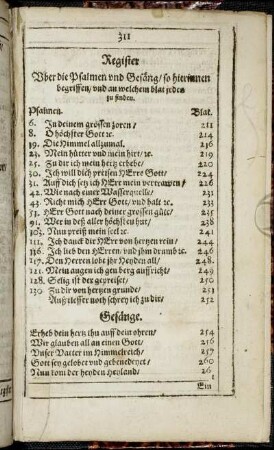 311
Register
Vber die Psalmen vnd Gesäng/ so hierinnen
begriffen/ vnd an welchem blat jedes
zu finden.
Psalmen. Blat.
6. In deinem grossen zoren/ 211
8. O höchster Gott ꝛc. 214
19. Die Himmel allzumal. 216
23. Mein hütter vnd mein hirt/ ꝛc. 219
25. Zu dir ich mein hertz erhebe/ 220
30. Ich will dich preisen HErre Gott/
31. Auff dich setz ich HErr mein vertrawen/ 226
42. Wie nach einer Wasserquelle/ 231
43. Nicht mich HErr Gott/ vnd halt ꝛc.
51. HErr Gott nach deiner grossen güte/
91. Wer in deß aller höchsten hut/ 238
103. Nun preiß mein seel ꝛc. 241
111. Ich danck dir HErr von hertzen rein/ 244
116. Ich lieb den HErren/ vnd ihm drumb ꝛc. 246
117. Den Herren lobt jhr Heyden all/ 248
121. Mein augen ich gen berg auffricht/ 249
128. Selig ist der gepreiset/ 250
130 Zu dir von hertzen grunde/ 251
Auß tieffer noth schrey ich zu dir/ 252
Gesänge.
Erheb dein hertz thu auff dein ohren/ 254
Wir glauben all an einen Gott/ 256
Vnser Vatter im Himmelreich/ 257
Gott sey gelobet vnd gebenedeyet/ 260
Nun kom der heyden Heyland/
Ein